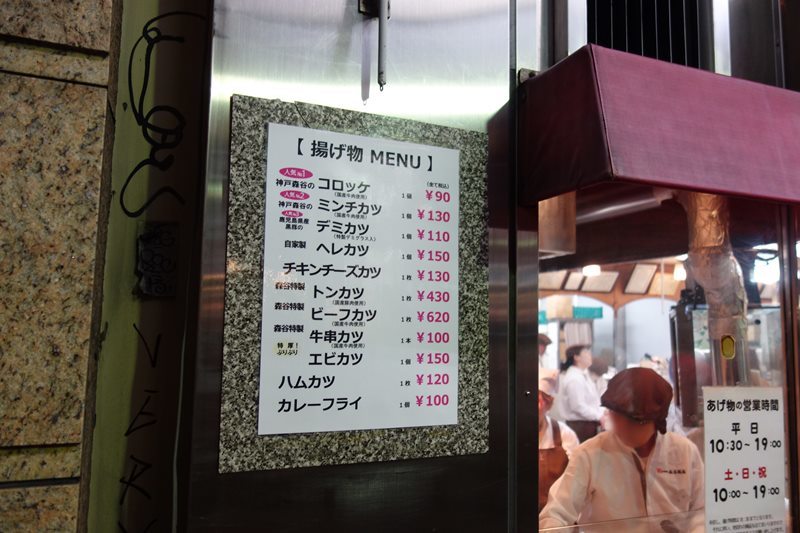 【 揚げ物 MENU 】
(全て税込)
人気No1
神戸森谷の コロッケ 1個 ¥90
(国産牛肉使用)
人気No2
神戸森谷の ミンチカツ 1個 ¥130
(国産牛肉使用)
人気No3
鹿児島県産
黒豚の デミカツ 1個 ¥110
(特製デミグラス入)
自家製 ヘレカツ 1個 ¥150
チキンチーズカツ 1枚 ¥130
森谷特製 トンカツ 1枚 ¥430
(国産豚肉使用)
森谷特製 ビーフカツ 1枚 ¥620
(国産牛肉使用)
森谷特製 牛串カツ 1本 ¥100
(国産牛肉使用)
特厚!
ぷりぷり エビカツ 1個 ¥150
ハムカツ 1枚 ¥120
カレーフライ 1個 ¥100
あげ物の営業時間
平日
10:30~19:00
土・日・祝
10:00~19:00